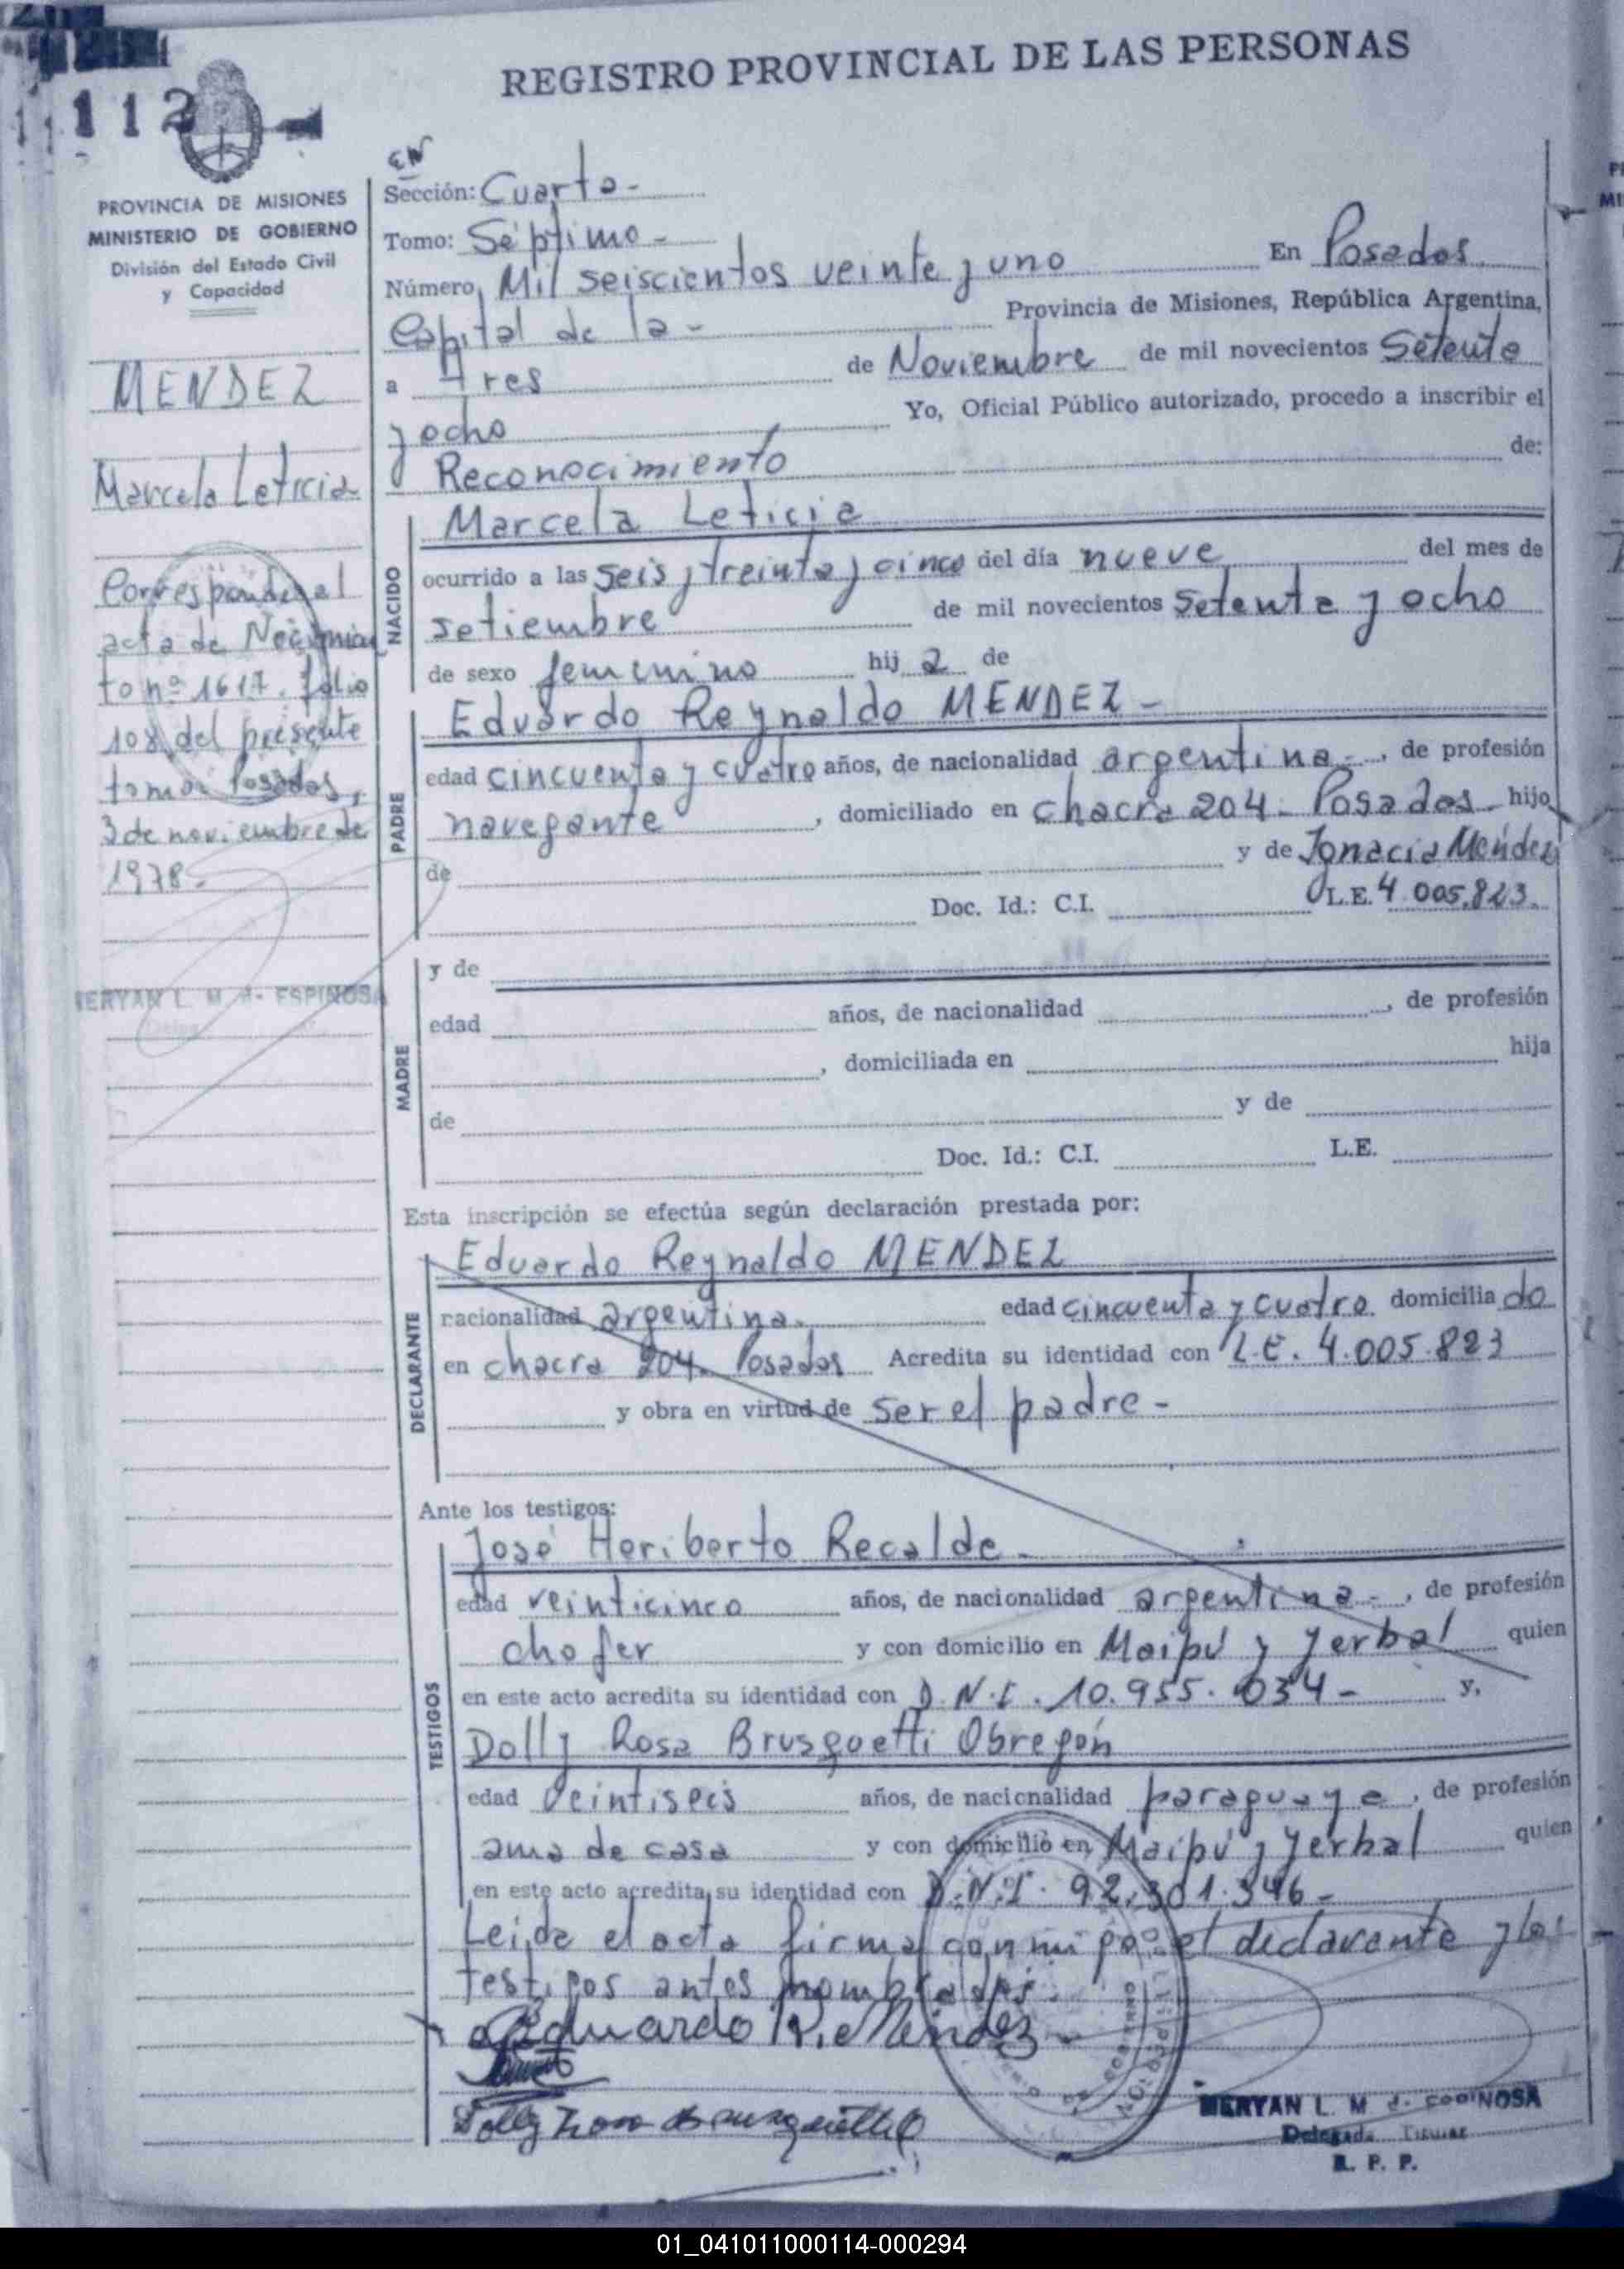 REGISTRO PROVINCIAL DE LAS PERSONAS
112
PROVINCIA DE MISIONES
MINISTERIO DE GOBIERNO
División del Estado Civil
y Capacidad
MENDEZ
Marcela Leticia
Corresponde al
acta de Nacimien
to nº 1617. folio
108 del presente
tomo. Posadas,
3 de noviembre de
1978.
MERYAN L. M. d. ESPINOSA
Sección: Cuarta-
Tomo: Séptimo-
Número, Mil seiscientos veinte y uno En Posadas
Capital de la- Provincia de Misiones, República Argentina,
a Tres de Noviembre de mil novecientos Setenta
y ocho Yo, Oficial Público autorizado, procedo a inscribir el
Reconocimiento de:
NACIDO
Marcela Leticia
ocurrido a las seis y treinta y cinco del día nueve del mes de
setiembre de mil novecientos setenta y ocho
de sexo femenino hij a de
PADRE
Eduardo Reynaldo MENDEZ-
edad cincuenta y cuatro años, de nacionalidad argentina-, de profesión
navegante, domiciliado en chacra 204- Posadas hijo
de y de Ignacia Mendez
Doc. Id.: C.I. L.E. 4.005.823.
MADRE
y de
edad años, de nacionalidad , de profesión
, domiciliada en hija
de y de
Doc. Id.: C.I. L.E.
Esta inscripción se efectúa según declaración prestada por:
DECLARANTE
Eduardo Reynaldo MENDEZ
nacionalidad argentina. edad cincuenta y cuatro domicilia do
en chacra 204. Posadas Acredita su identidad con L.E. 4.005.823
y obra en virtud de ser el padre-
Ante los testigos:
TESTIGOS
José Heriberto Recalde-
edad veinticinco años, de nacionalidad argentina-, de profesión
chofer y con domicilio en Maipú y Yerbal quien
en este acto acredita su identidad con D.N.I. 10.955.034- y,
Dolly Rosa Brusquetti Obregón
edad veintiseis años, de nacionalidad paraguaya, de profesión
ama de casa y con domicilio en Maipú y Yerbal quien
en este acto acredita su identidad con D.N.I. 92.301.346-
Leida el acta firma conmigo el declarante y los
testigos antes nombrados.
Eduardo R. Mendez
MERYAN L. M. d. ESPINOSA
Delegada Titular
R. P. P.
01_041011000114-000294